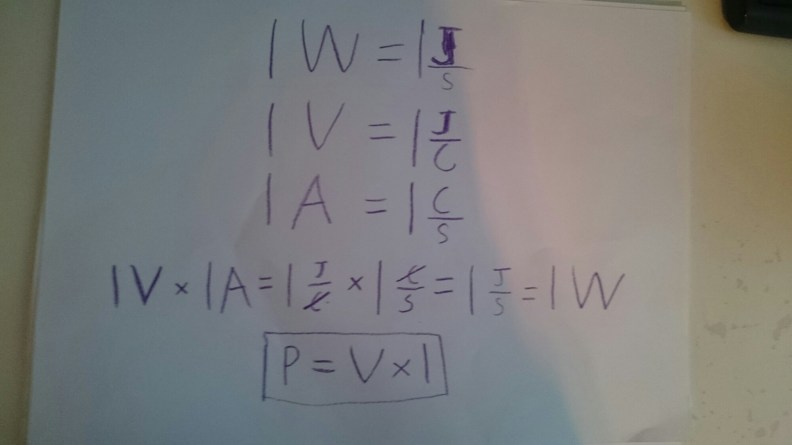 1 W = 1 J/s
1 V = 1 J/C
1 A = 1 C/s
1V × 1A = 1 J/C × 1 C/s = 1 J/s = 1 W
P = V × I